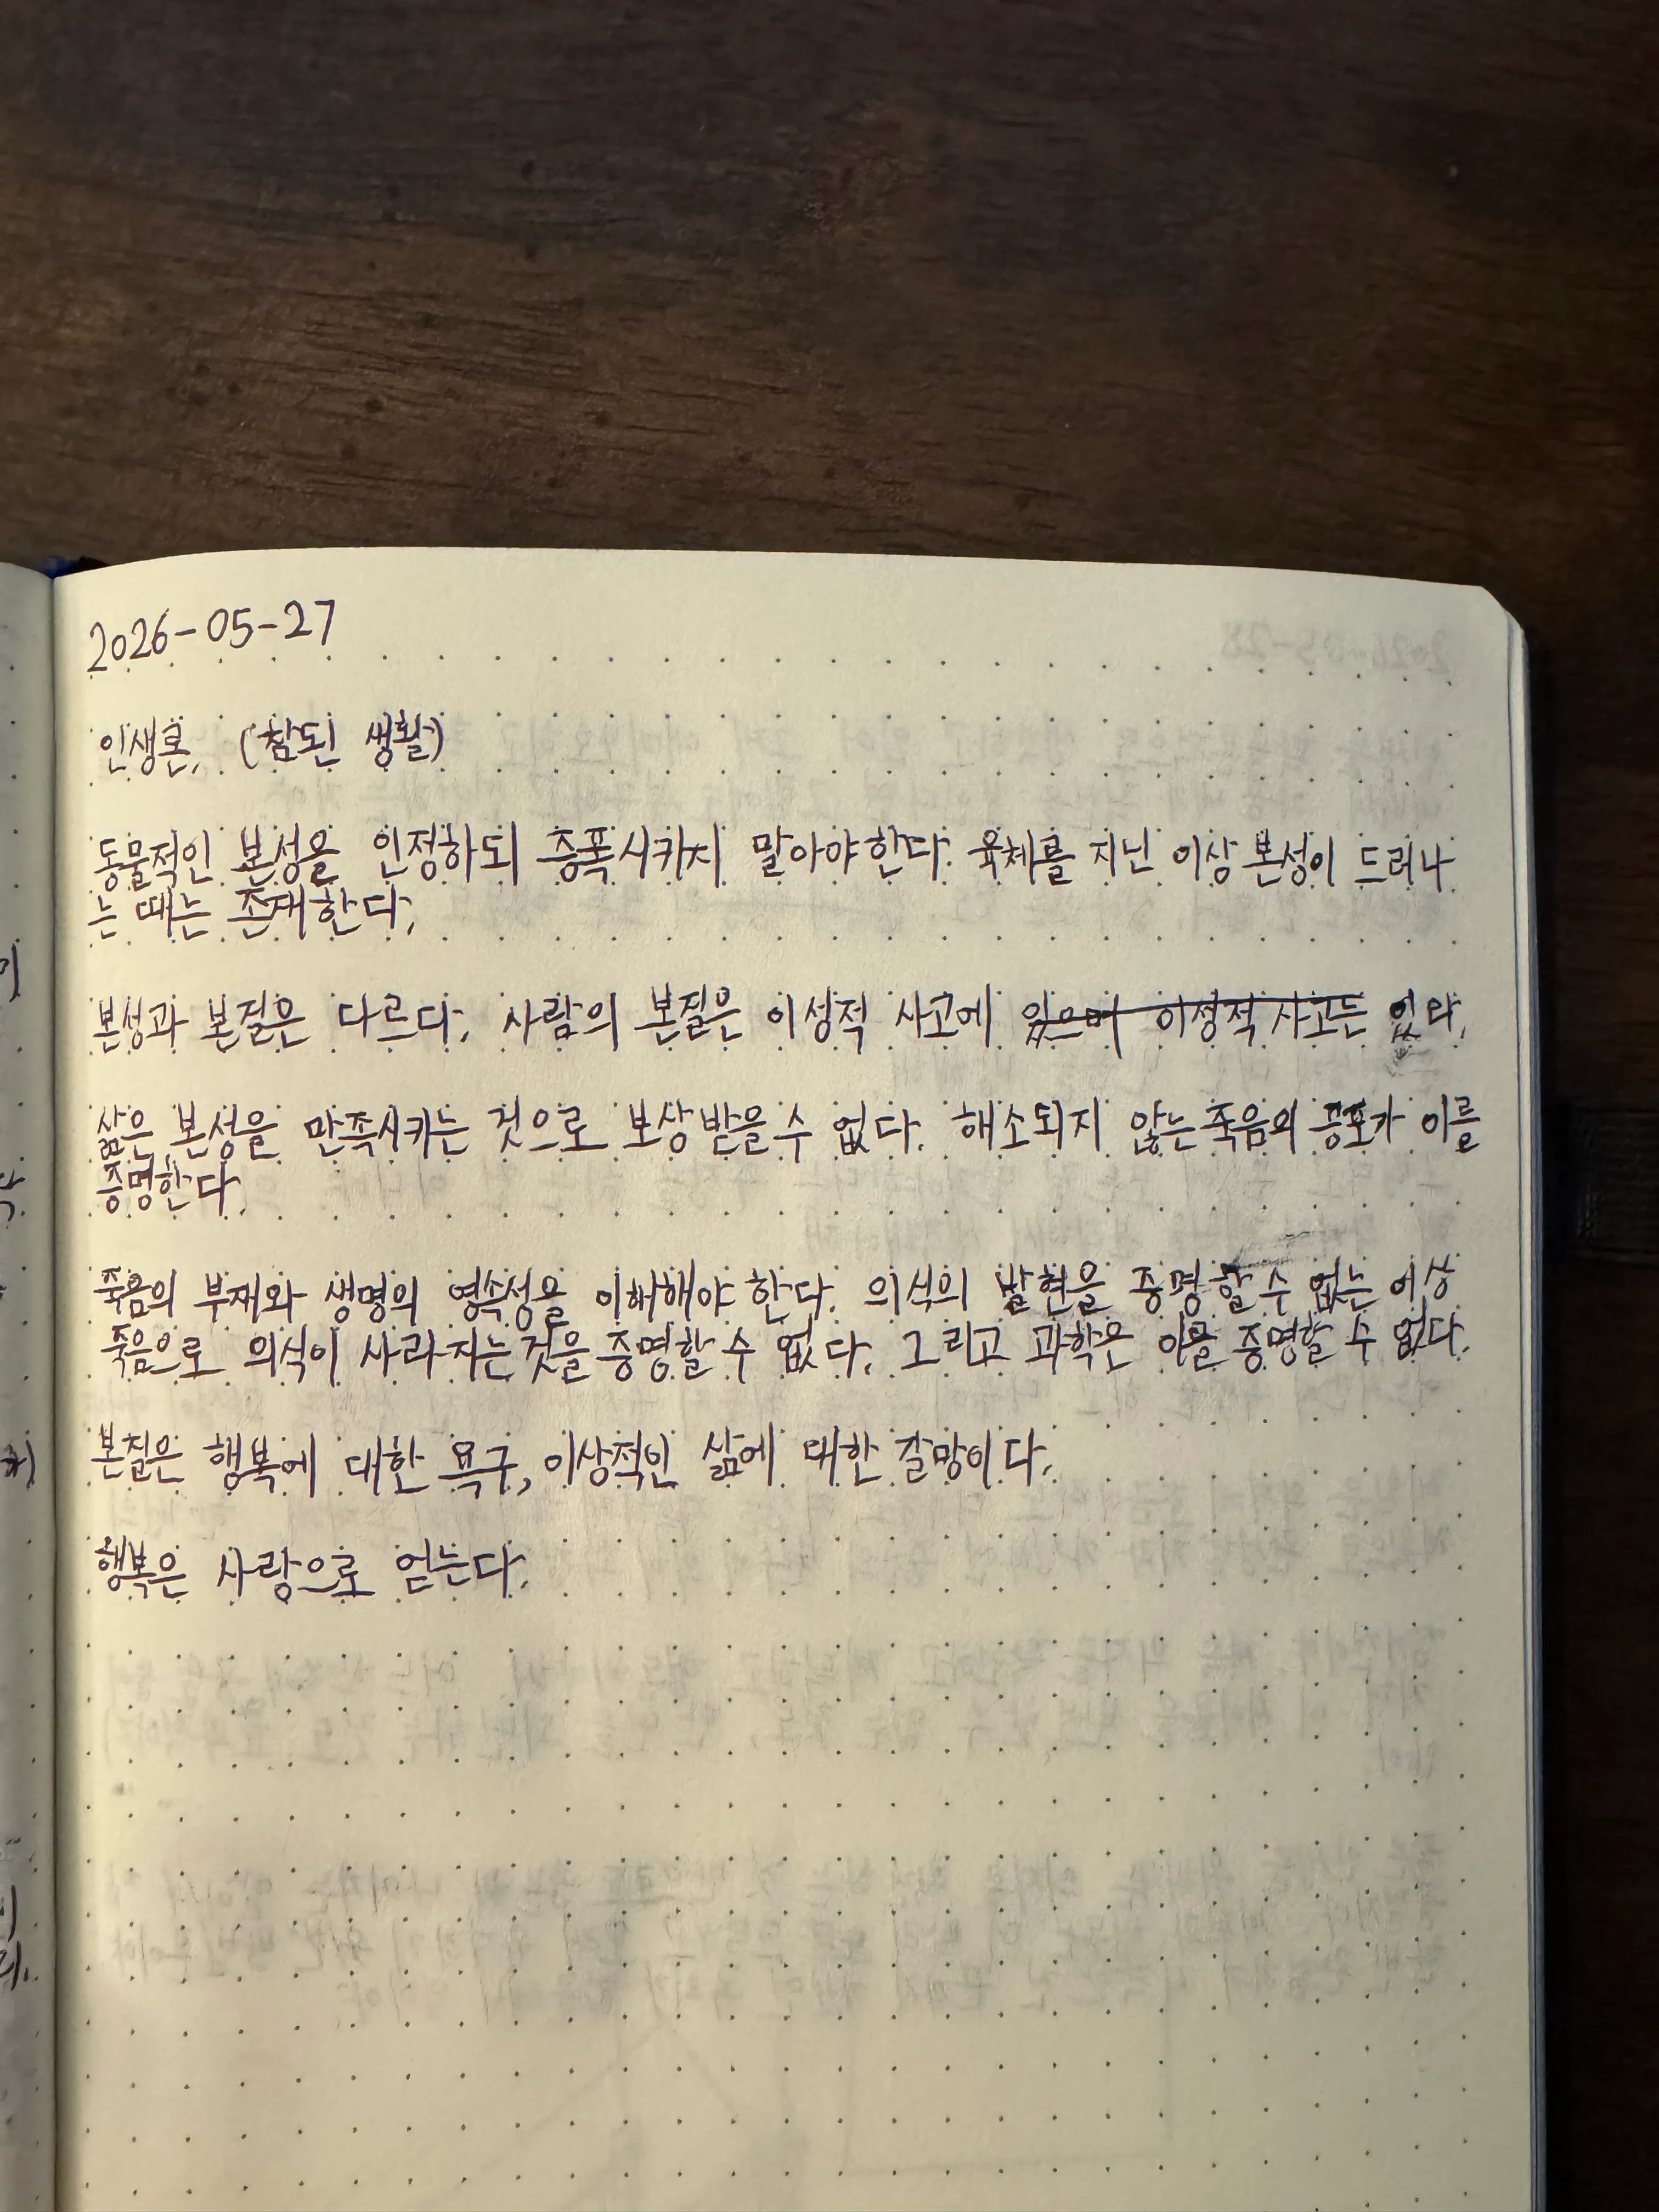 2026-05-27
인생론, (참된 생활)
동물적인 본성을 인정하되 증폭시키지 말아야한다. 육체를 지닌 이상 본성이 드러나
는 때는 존재한다.
본성과 본질은 다르다. 사람의 본질은 이성적 사고에 있으며 이성적 사고는 있다.
삶은 본성을 만족시키는 것으로 보상받을 수 없다. 해소되지 않는 죽음의 공포가 이를
증명한다.
죽음의 부재와 생명의 영속성을 이해해야 한다. 의식의 발현을 증명할 수 없는 이상
죽음으로 의식이 사라지는 것을 증명할 수 없다. 그리고 과학은 이를 증명할 수 없다.
본질은 행복에 대한 욕구, 이상적인 삶에 대한 갈망이다.
행복은 사랑으로 얻는다.